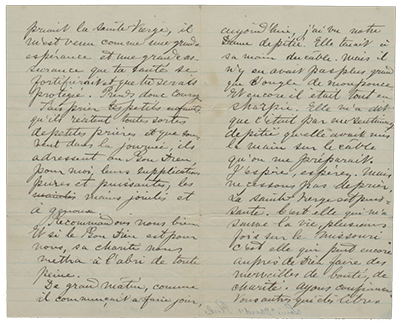 priait la Sainte Vierge, il
m'est venu comme une grande
espérance et une grande as-
surance que ta santé se
fortifierait et que tu serais
protégé. Prends donc courage
Fais prier les petits enfants
qu'ils récitent toutes sortes
de petites prières et que sou-
vent dans la journée, ils
adressent au Bon Dieu
pour moi, leurs supplications
pures et puissantes, les
mains jointes et
à genoux.
Recommandons nous bien
Et si le Bon Dieu est pour
nous, sa charité nous
mettra à l'abri de toute
peine.
De grand matin, comme
il commençait à faire jour,
aujourd'hui, j'ai vu notre
Dame de pitié. Elle tenait à
sa main du cable. Mais il
n'y en avait pas plus grand
que l'ongle de mon pouce.
Et encore il était tout en
charpie. Elle m'a dit
que c'était par
de pitié qu'elle avait mis
la main sur le cable
qu'on me préparait.
J'espère, espérez. Mais
ne cessons pas de prier.
La Sainte Vierge est puis-
sante. C'est elle qui m'a
sauvé la vie, plusieurs
fois sur le Missouri
C'est elle qui peut encore
auprès de Dieu faire des
merveilles de bonté, de
charité. Ayons confiance